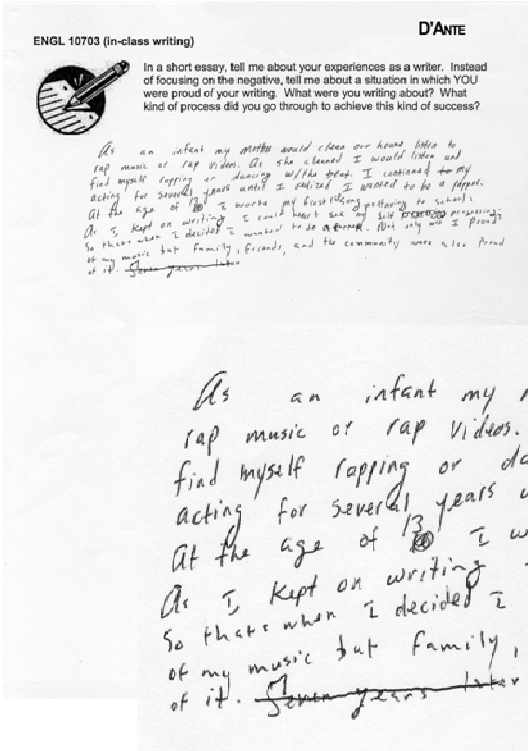 D'ANTE
ENGL 10703 (in-class writing)
In a short essay, tell me about your experiences as a writer. Instead
of focusing on the negative, tell me about a situation in which YOU
were proud of your writing. What were you writing about? What
kind of process did you go through to achieve this kind of success?
As an infant my mother would clean our house listen to
rap music or rap videos. As she cleaned I would listen and
find myself rapping or dancing w/the beat. I continued to my
acting for several years until I realized I wanted to be a rapper.
At the age of 13 I my first song pertaining to school.
As I kept on writing I could see my self progressing
So thats when I decided I wanted to be a. Not only was I proud
of my music but family, friends, and the community were also proud
of it. Seven years later
As an infant my
rap music or rap videos.
find myself rapping or da
acting for several years u
At the age of 13 I w
As I kept on writing
So thats when I decided I
of my music but family,
of it. Seven years later